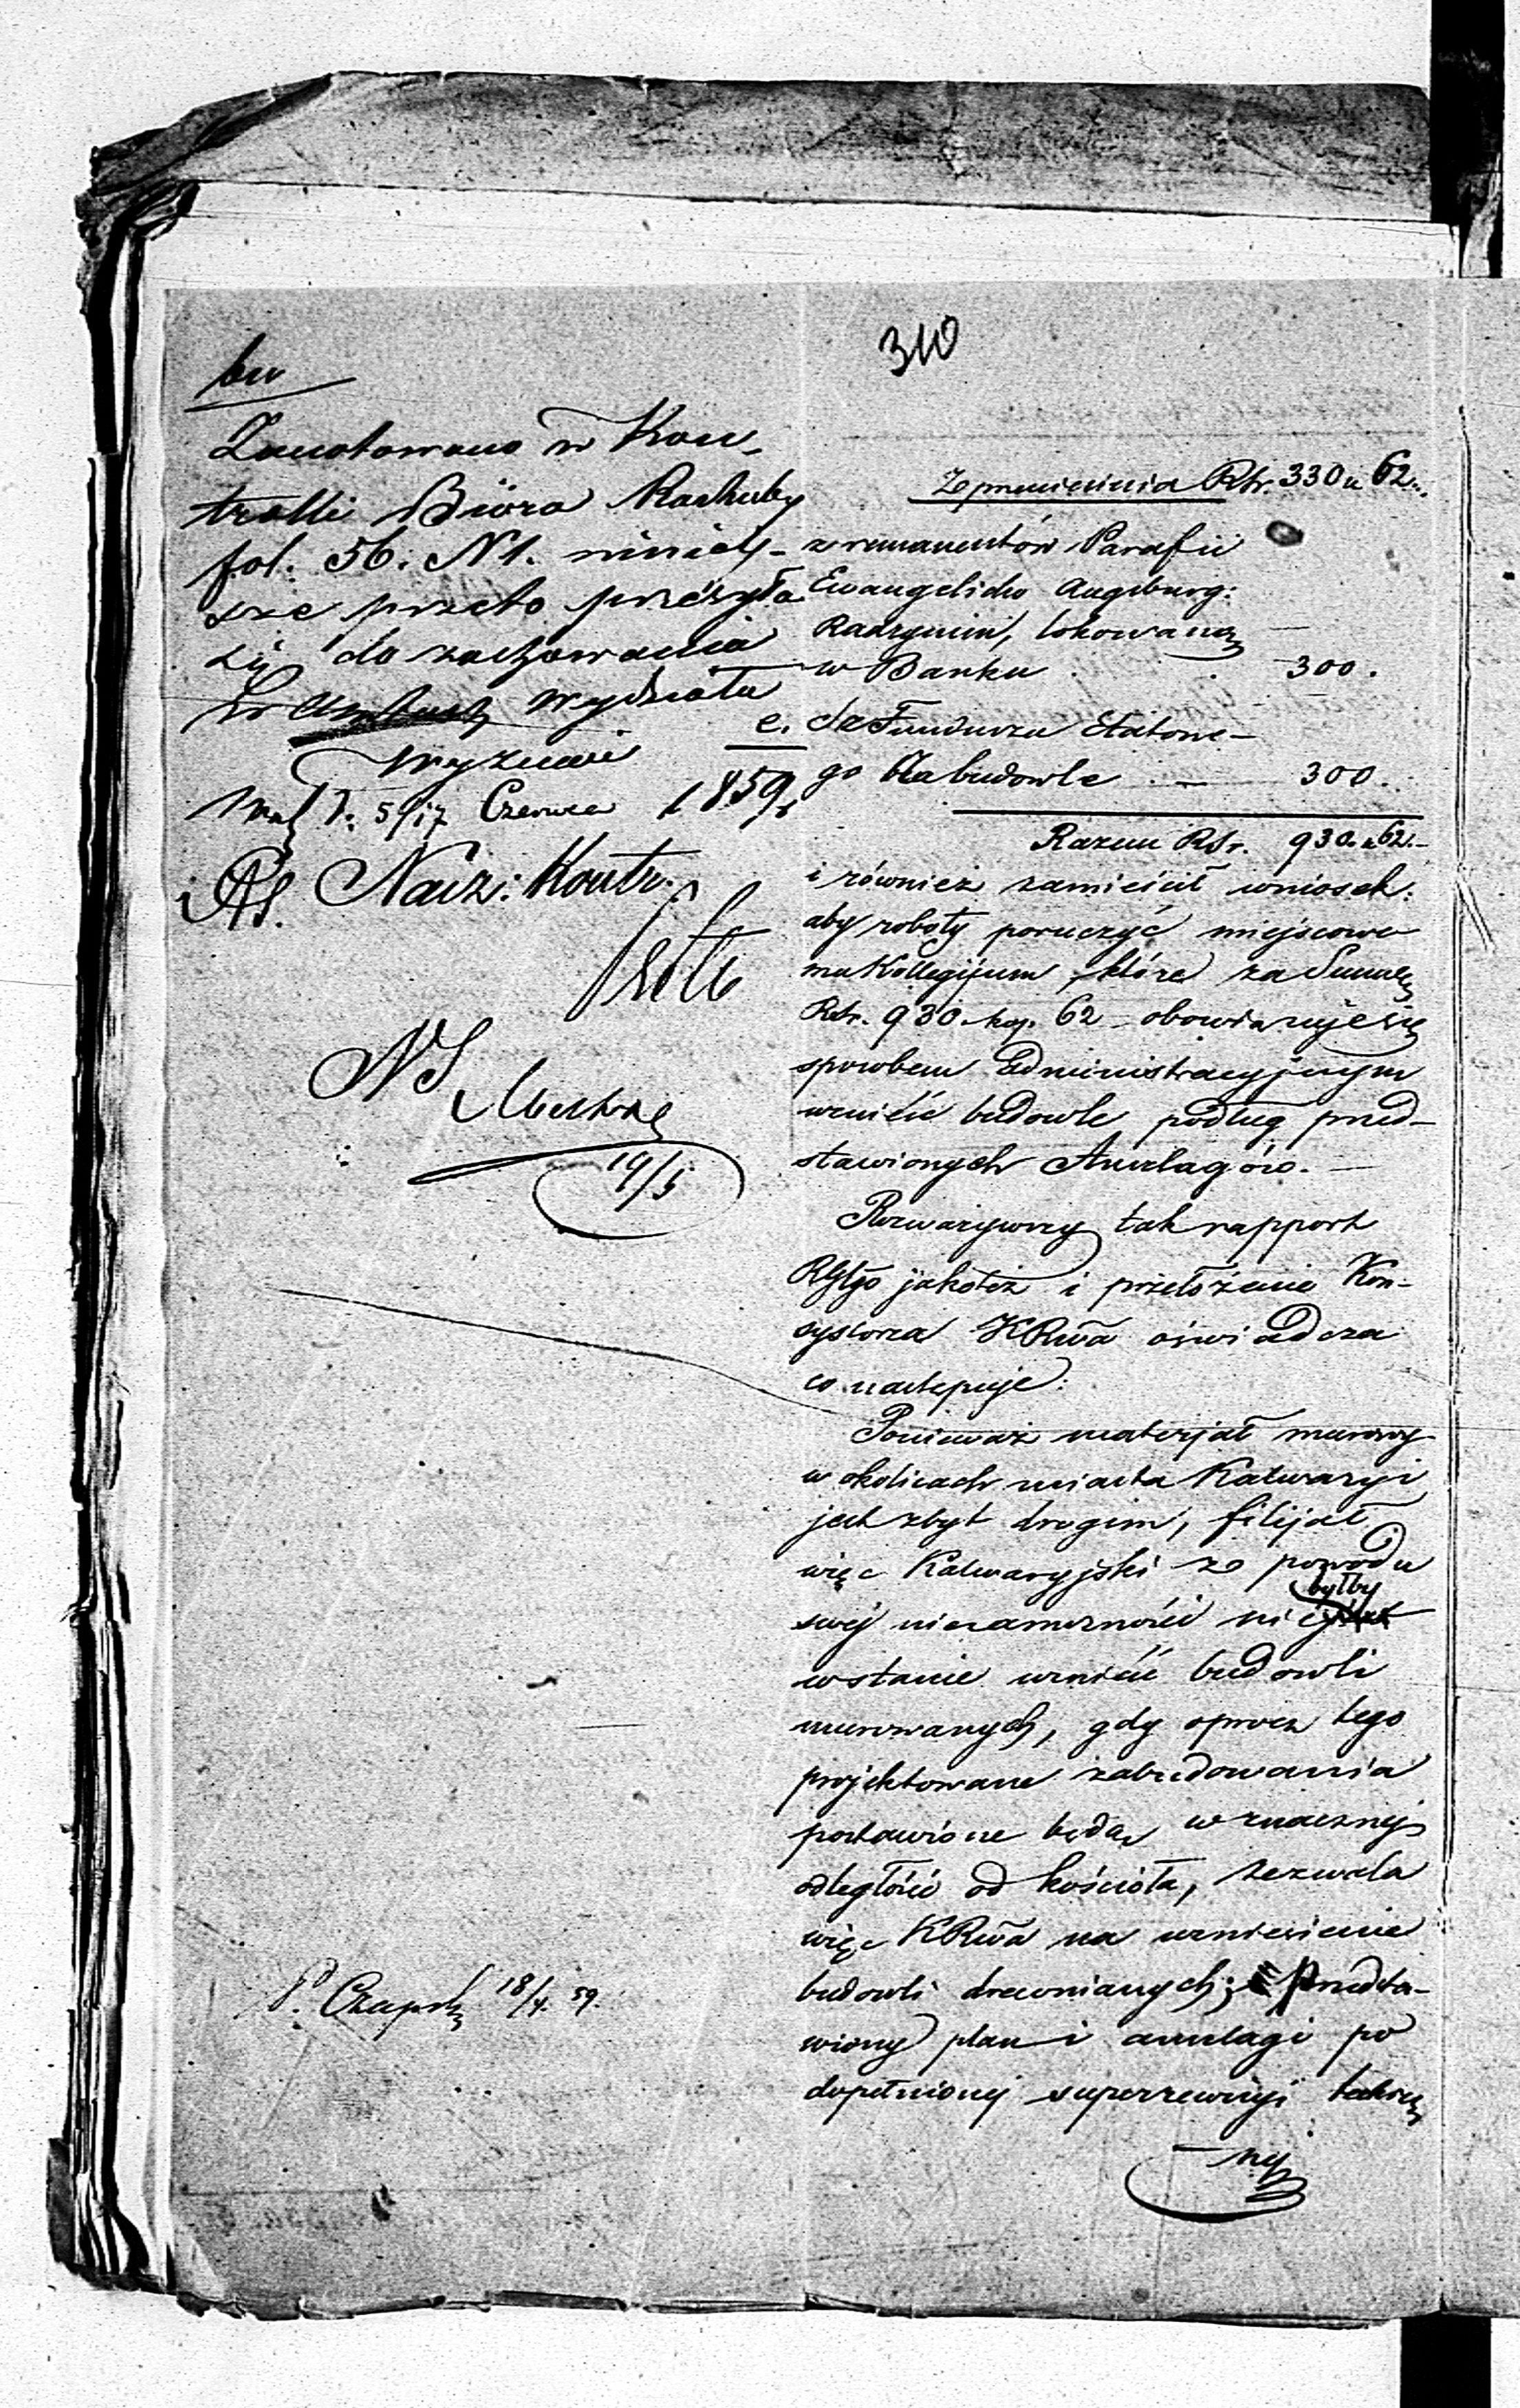 310
bw
Zanotowano w Kon-
trolli Bióra Rachuby
fol. 56. N 1. niniej-
sze przeto przesyła
się do zachowania
w Wydziału
Wyznań
d. 5/17 Czerwca 1859 r
Nacz: Kontr.
NS
19/5
P. Czapsk 18/4. 59.
Z przeniesienia Rbr. 330 k. 62.
z remanentów Parafii
Ewangelicko Augsburg:
Radzymin, lokowaną
w Banku . . 300.
e. ze Funduszu Etatowe-
go na budowle — 300.
Razem Rbr. 930 k 62.-
i również zamieścił wniosek.
aby roboty poruczyć miejscowe-
mu Kollegijum, które za Summę
Rbr. 930 kop. 62 obowiązuje się
sposobem Administracyjnym
wznieść budowle podług przed-
stawionych Anszlagów. —
Rozważywszy tak rapport
RGłgo jakoteż i przełożenie Kon-
systorza KRwa oświadcza
co następuje:
Ponieważ materjał murowy
w okolicach miasta Kalwaryi
jest zbyt drogim, filijał
więc Kalwaryjski z powodu
swej niezamożności nie byłby
w stanie wznieść budowli
murowanych, gdy oprócz tego
projektowane zabudowania
postawione będą w znacznej
odległości od kościoła, zezwala
więc KRwa na wzniesienie
budowli drewnianych; Przedsta-
wiony plan i anszlagi po
dopełnionej superrewizyi techni-
-nej